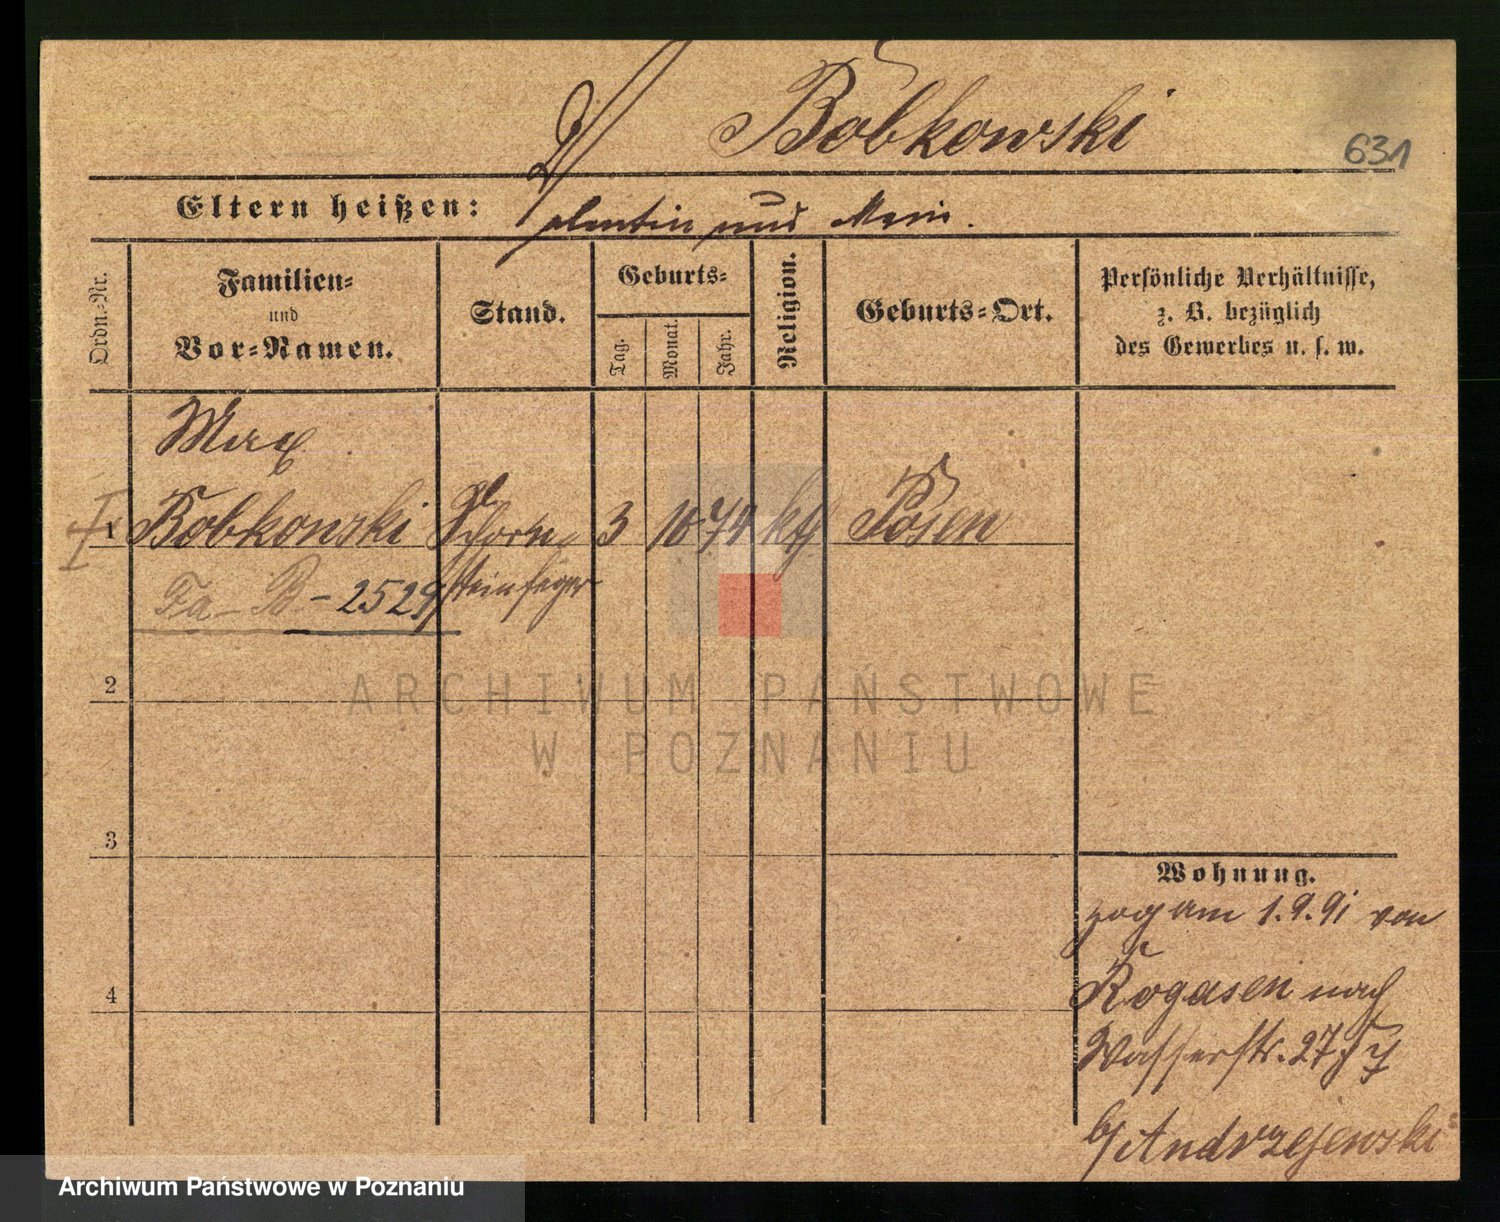 Bobkowski
631
Eltern heißen: Valentin und Marie.
Ordn.-Nr.
Familien-
und
Vor-Namen.
Stand.
Geburts-
Tag.
Monat.
Jahr.
Religion.
Geburts-Ort.
Persönliche Verhältnisse,
z. B. bezüglich
des Gewerbes u. s. w.
Max
1 Bobkowski Schorn 3 10 74 kth Posen
steinfeger
Fa - B. - 2529
2
3
4
Wohnung.
zog am 1.9.91 von
Rogasen nach
Wasserstr. 27
b/ Andrzejewski
ARCHIWUM PAŃSTWOWE
W POZNANIU
Archiwum Państwowe w Poznaniu